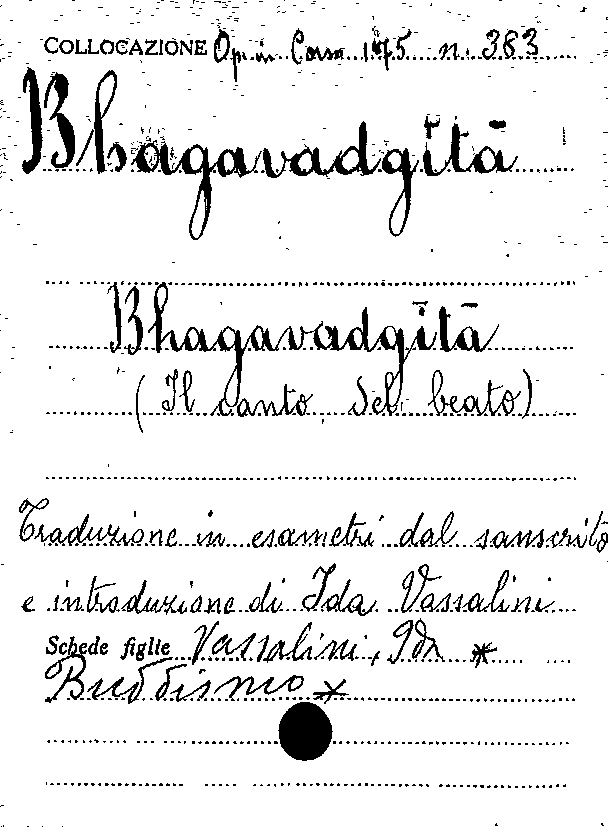 COLLOCAZIONE Op. in Corso 175 n. 383
Bhagavadgītā
Bhagavadgītā
(Il canto del beato)
Traduzione in esametri dal sanscrito
e introduzione di Ida Vassalini
Schede figlie Vassalini, Ida *
Buddismo *